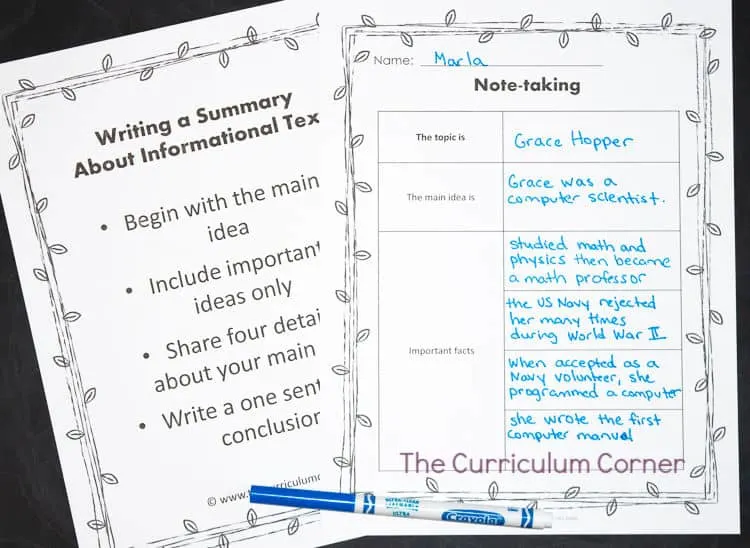 Writing a Summary
About Informational Tex
• Begin with the main
idea
• Include important
ideas only
• Share four detai
about your main
• Write a one sent
conclusion
© www.
Name: Marla
Note-taking
The topic is
Grace Hopper
The main idea is
Grace was a
computer scientist.
Important facts
studied math and
physics then became
a math professor
the US Navy rejected
her many times
during World War II
when accepted as a
Navy volunteer, she
programmed a computer
she wrote the first
computer manual
The Curriculum Corner
ULTRA-CLEAN
WASHABLE
ULTRA
Crayola